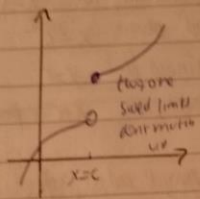 two one
sided limits
dont match
x=c